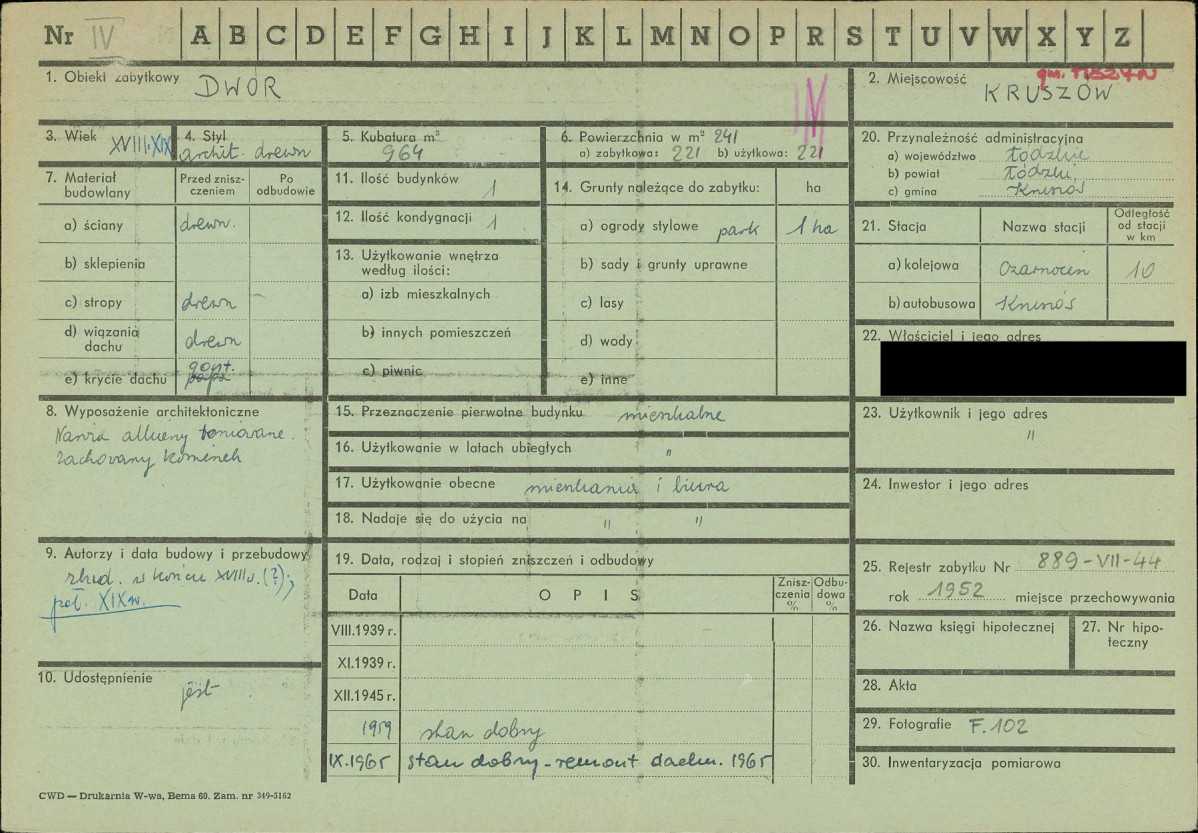 Nr IV A B C D E F G H I J K L M N O P R S T U V W X Y Z
1. Obiekt zabytkowy DWÓR
2. Miejscowość gm. TUSZYN
KRUSZÓW
3. Wiek XVIII.XIX
4. Styl
archit. drewn
5. Kubatura m³
964
6. Powierzchnia w m² 241
a) zabytkowa: 221 b) użytkowa: 221
IV
7. Materiał budowlany
Przed znisz-
czeniem
Po
odbudowie
a) ściany drewn.
b) sklepienia
c) stropy drewn
d) wiązania
dachu drewn
e) krycie dachu gont.
papa
8. Wyposażenie architektoniczne
zachowany kominek
9. Autorzy i data budowy i przebudowy
zbud. w końcu XVIII w. (?);
poł. XIX w.
10. Udostępnienie
jest
11. Ilość budynków 1
12. Ilość kondygnacji 1
13. Użytkowanie wnętrza
według ilości:
a) izb mieszkalnych
b) innych pomieszczeń
c) piwnic
14. Grunty należące do zabytku: ha
a) ogrody stylowe park 1 ha
b) sady i grunty uprawne
c) lasy
d) wody
e) inne
15. Przeznaczenie pierwotne budynku mieszkalne
16. Użytkowanie w latach ubiegłych "
17. Użytkowanie obecne mieszkania i biura
18. Nadaje się do użycia na " "
19. Data, rodzaj i stopień zniszczeń i odbudowy
Data OPIS Znisz-
czenia
% Odbu-
dowa
%
VIII.1939 r.
XI.1939 r.
XII.1945 r.
1959 stan dobry
IX.1965 stan dobry - remont dachu. 1965
20. Przynależność administracyjna
a) województwo łódzkie
b) powiat Łódzki,
c) gmina Kruszów
21. Stacja Nazwa stacji Odległość
od stacji
w km
a) kolejowa 10
b) autobusowa Kruszów
22. Właściciel i jego adres
23. Użytkownik i jego adres
"
24. Inwestor i jego adres
25. Rejestr zabytku Nr 889-VII-44
rok 1952 miejsce przechowywania
26. Nazwa księgi hipotecznej
27. Nr hipo-
teczny
28. Akta
29. Fotografie F.102
30. Inwentaryzacja pomiarowa
CWD — Drukarnia W-wa, Bema 60. Zam. nr 349-5162